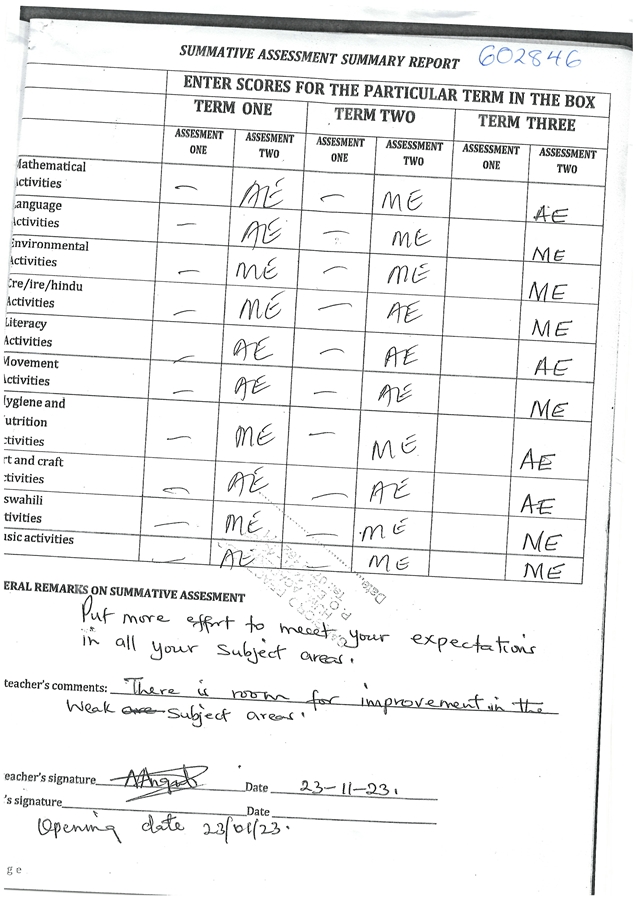 SUMMATIVE ASSESSMENT SUMMARY REPORT 602846
ENTER SCORES FOR THE PARTICULAR TERM IN THE BOX
TERM ONE TERM TWO TERM THREE
ASSESMENT ONE ASSESMENT TWO ASSESSMENT ONE ASSESSMENT TWO ASSESSMENT ONE ASSESSMENT TWO
athematical
ctivities — AE — ME AE
anguage
ctivities — AE — ME ME
nvironmental
ctivities — ME — ME ME
re/ire/hindu
ctivities — ME — AE ME
iteracy
ctivities — AE — AE AE
ovement
ctivities — AE — AE ME
ygiene and
utrition
ctivities — ME — ME AE
rt and craft
ctivities — AE — AE AE
swahili
tivities — ME — ME ME
usic activities — AE — ME ME
ERAL REMARKS ON SUMMATIVE ASSESMENT
Put more effort to meeet your expectations
in all your subject areas.
teacher's comments: There is room for improvement in the
weak are subject areas.
eacher's signature Date 23-11-23.
's signature Date
Opening date 23/01/23.
g e